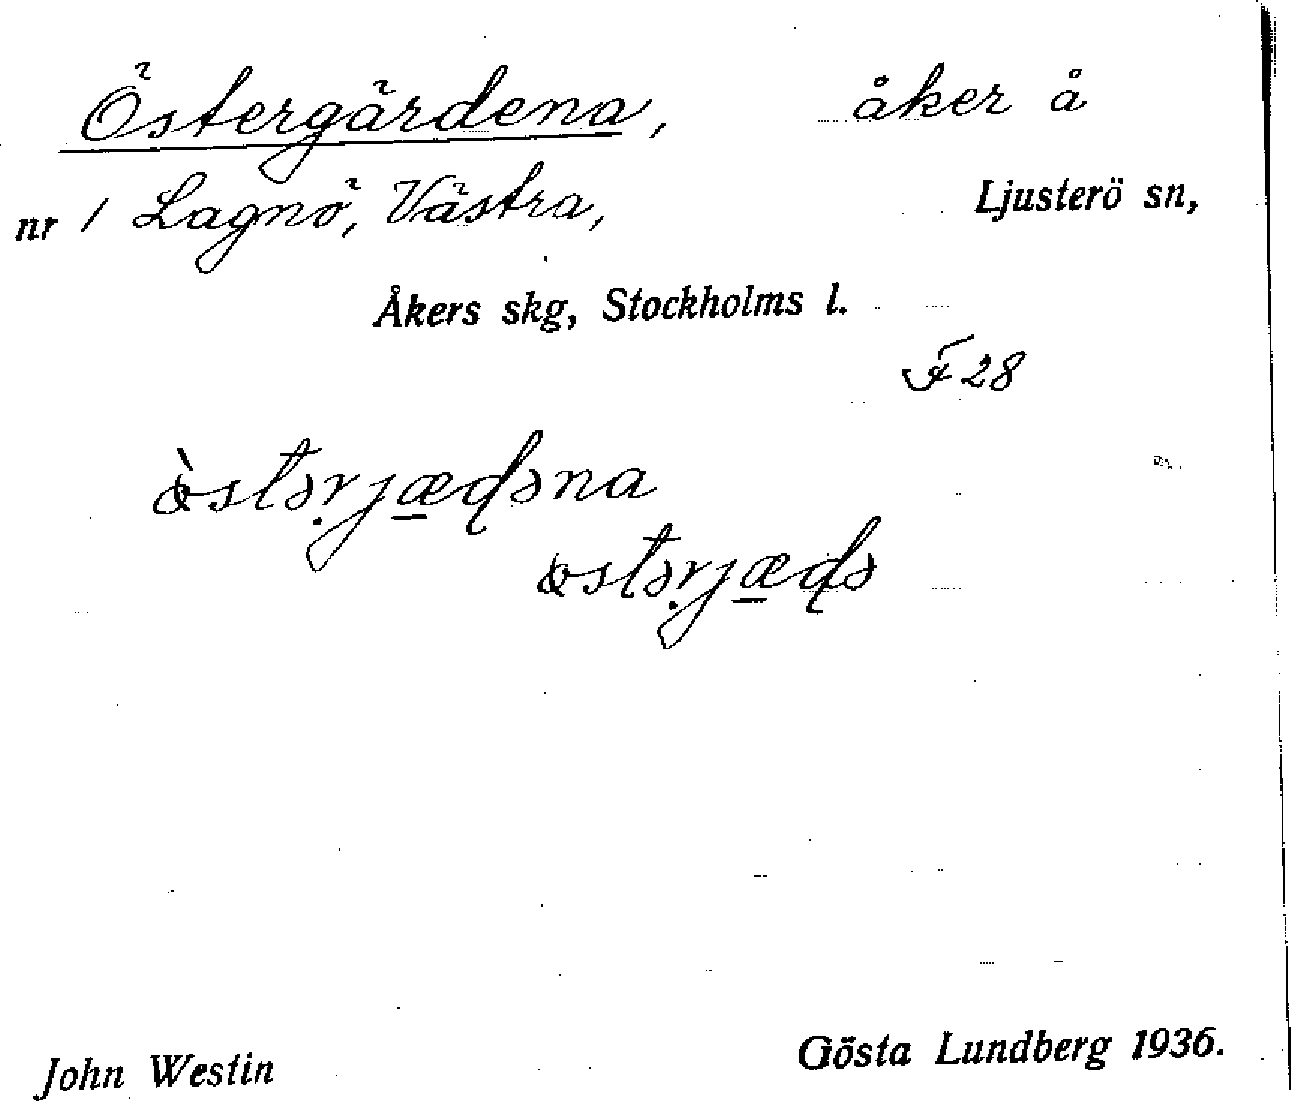 Östergärdena, åker å
nr 1 Lagnö, Västra, Ljusterö sn,
Åkers skg, Stockholms l.
F 28
John Westin Gösta Lundberg 1936.